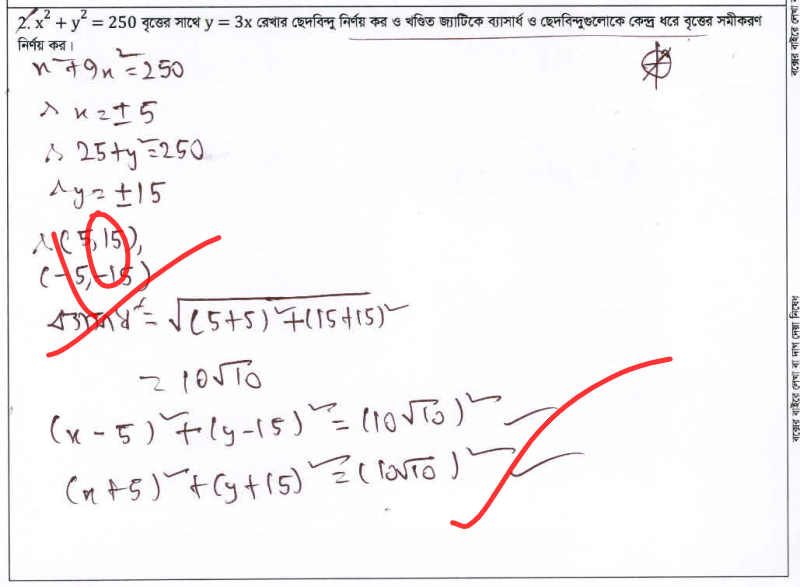 2. x² + y² = 250 বৃত্তের সাথে y = 3x রেখার ছেদবিন্দু নির্ণয় কর ও খণ্ডিত জ্যাটিকে ব্যাসার্ধ ও ছেদবিন্দুগুলোকে কেন্দ্র ধরে বৃত্তের সমীকরণ
নির্ণয় কর।
x² + 9x² = 250
∴ x = ± 5
∴ 25 + y² = 250
∴ y = ± 15
∴ (5, 15),
(-5, -15)
= √(5+5)² + (15+15)²
= 10√10
(x - 5)² + (y - 15)² = (10√10)²
(x + 5)² + (y + 15)² = (10√10)²
বক্সের বাইরে লেখা বা দাগ দেয়া নিষেধ